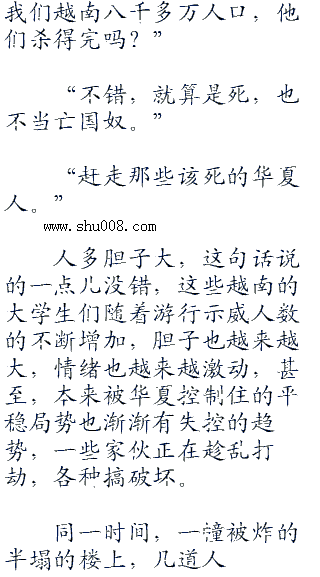 我们越南八千多万人口，他
们杀得完吗？”
“不错，就算是死，也
不当亡国奴。”
“赶走那些该死的华夏
人。”
www.shu008.com
人多胆子大，这句话说
的一点儿没错，这些越南的
大学生们随着游行示威人数
的不断增加，胆子也越来越
大，情绪也越来越激动，甚
至，本来被华夏控制住的平
稳局势也渐渐有失控的趋
势，一些家伙正在趁乱打
劫，各种搞破坏。
同一时间，一幢被炸的
半塌的楼上，几道人